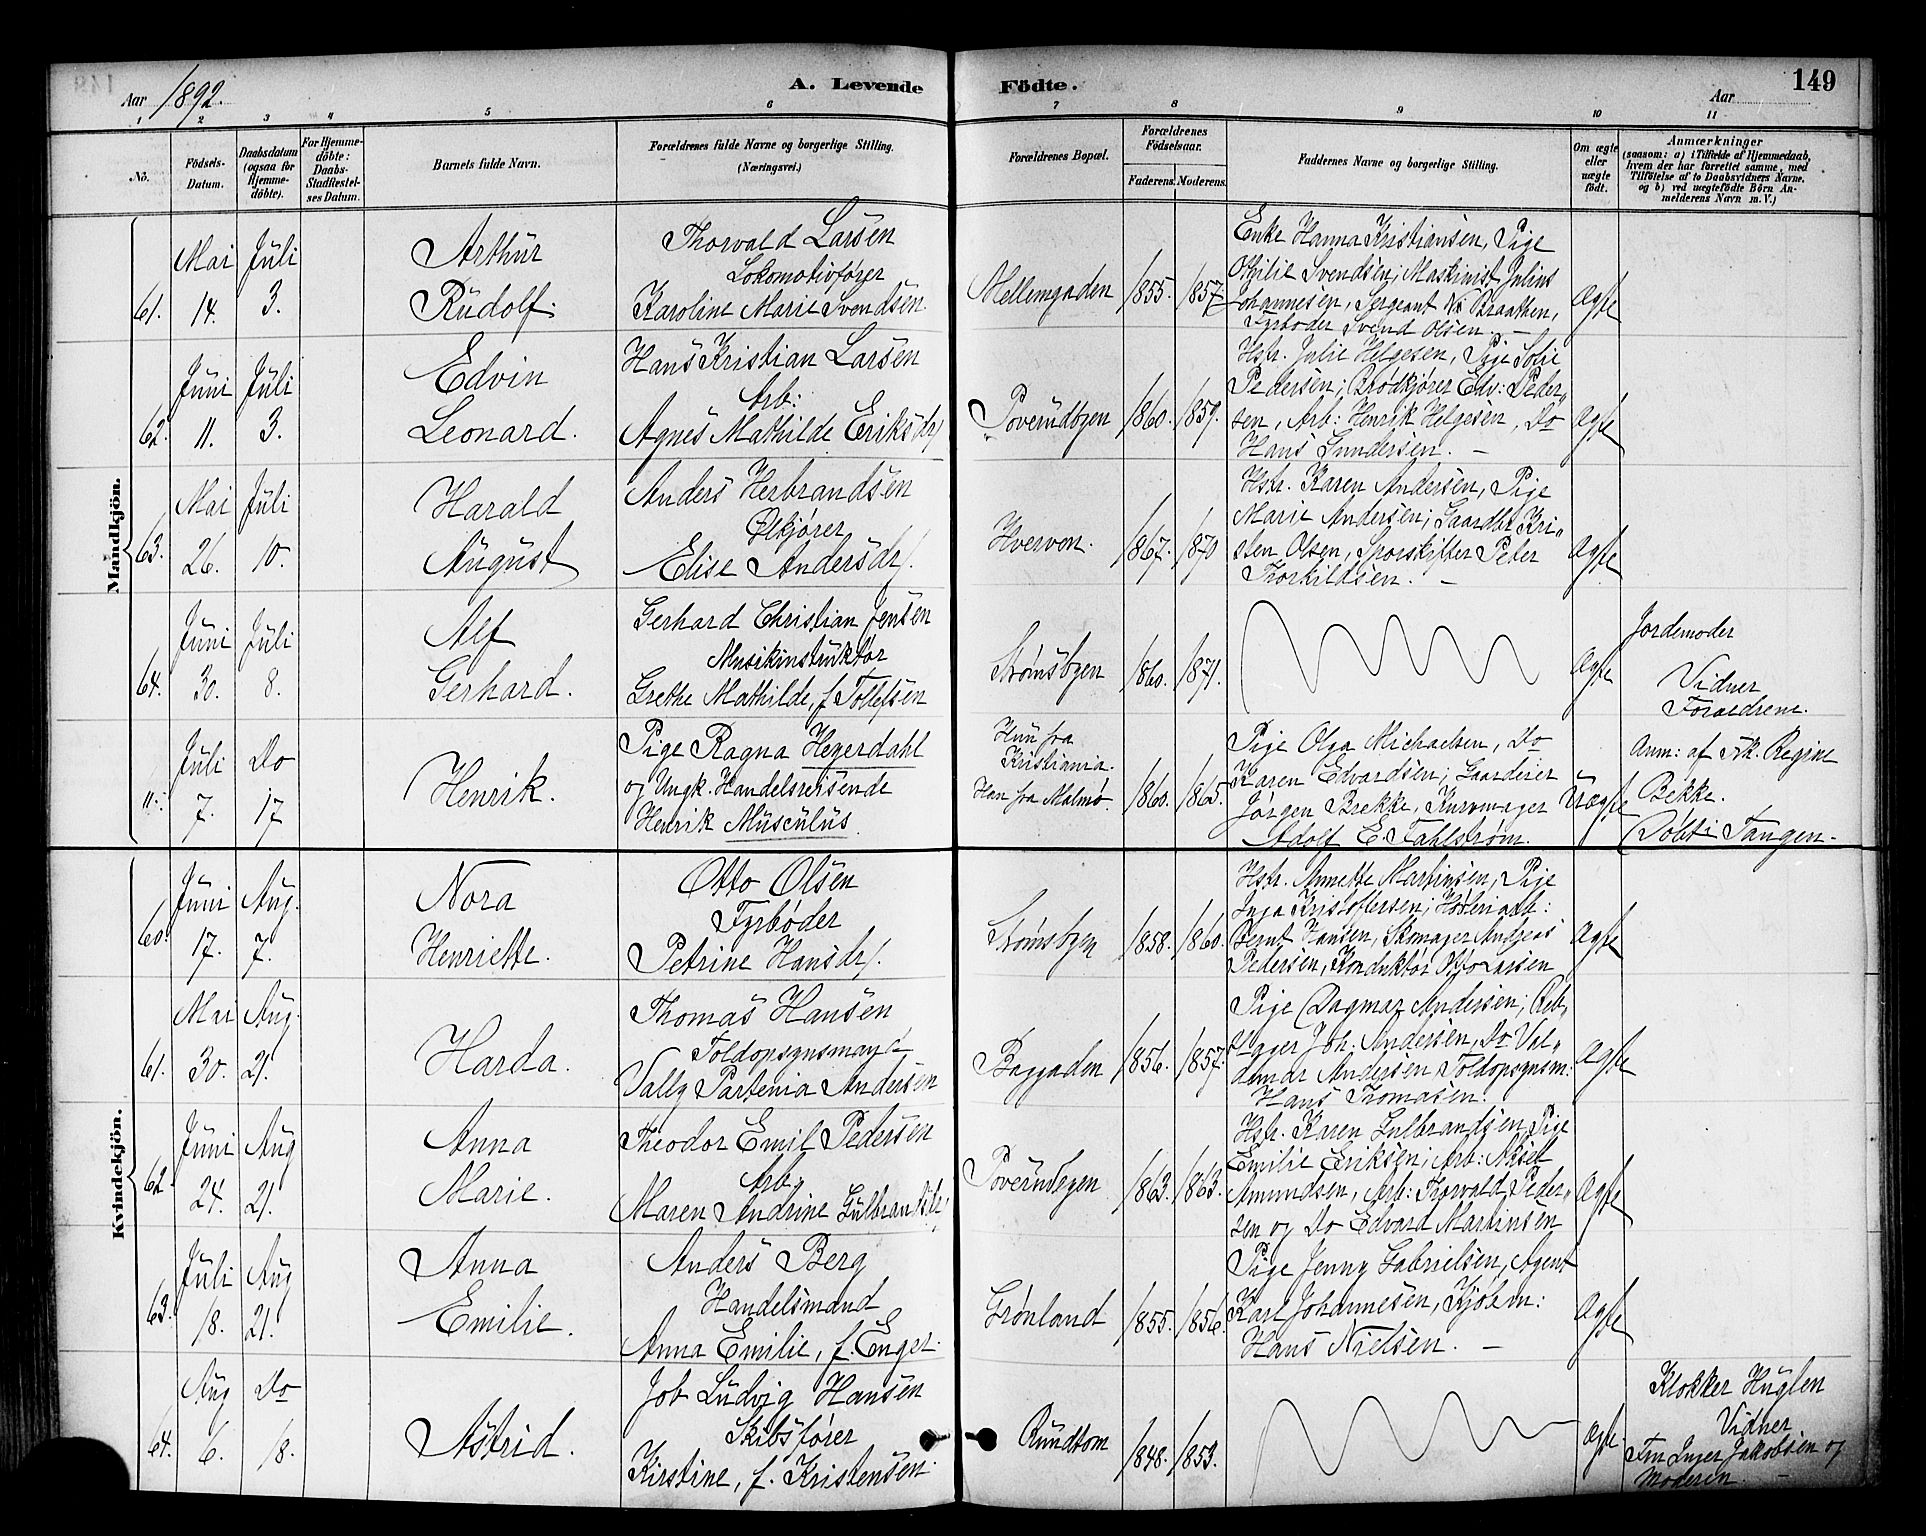 Aar 1892.
A. Levende Födte.
149
Aar
1 2 3 4 5 6 7 8 9 10 11
No.
Födsels-Datum.
Daabsdatum (ogsaa för Hjemme-döbte).
For Hjemme-döbte: Daabs-Stadfæstel-ses Datum.
Barnets fulde Navn.
Forældrenes fulde Navne og borgerlige Stilling.
(Næringsvei.)
Forældrenes Bopæl.
Forældrenes Födselsaar.
Faderens. Moderens.
Faddernes Navne og borgerlige Stilling.
Om ægte eller uægte födt.
Anmærkninger
(saasom: a) i Tilfælde af Hjemmedaab,
hvem der har forrettet samme, med
Tilföielse af to Daabsvidners Navne.
og b) ved uægtefödte Börn An-
melderens Navn m. V.)
Mandkjön.
61. Mai 14. Juli 3.
Arthur
Rudolf.
Thorvald Larsen
Lokomotivfører
Karoline Marie Svendsen
Mellemgaden 1855. 1857.
Enke Hanna Kristiansen, Pige
Othilie Svendsen; Maskinist Julius
Johannesen, Sergeant N. Braathen,
Fyrbøder Svend Olsen. –
Ægte
62. Juni 11. Juli 3.
Edvin
Leonard.
Hans Kristian Larsen
Arb:
Agnes Mathilde Eriksdr.
Poverudbyen 1860. 1859.
Hstr. Julie Helgesen, Pige Sofie
Pedersen; Brødkjører Edv: Peder-
sen, Arb: Henrik Helgesen, Do
Hans Gundersen. –
Ægte
63. Mai 26. Juli 10.
Harald
August
Anders Herbrandsen
Ølkjører
Elise Andersdr.
Hverven. 1867. 1870
Hstr. Karen Andersen, Pige
Marie Andersen; Gaardbr. Kri-
sten Olsen, Sporskifter Peter
Thorkildsen. –
Ægte
64. Juni 30. Juli 8.
Alf
Gerhard.
Gerhard Christian Jensen
Musikinstruktør
Grethe Mathilde, f. Tollefsen
Strømsbyen 1860. 1871.
Ægte
Jordemoder
Vidner
Forældrene.
Juli 7. Do 17
Henrik.
Pige Ragna Heyerdahl
og Ungk. Handelsreisende
Henrik Musculus.
Hun fra
Kristiania.
Han fra Malmö. 1860. 1865.
Pige Olga Michaelsen, Do
Karen Edvardsen; Gaardeier
Jørgen Brekke, Kurvmager
Adolf E. Fahlstrøm.
Uægte
Anm: af Frk. Regine
Bekke.
Døbt i Tangen.
Kvindekjön.
60. Juni 17. Aug. 7.
Nora
Henriette.
Otto Olsen
Fyrbøder
Petrine Hansdr.
Strømsbyen 1858. 1860.
Hstr. Annette Martinsen, Pige
Inga Kristoffersen;
Bernt Hansen, Skomager Andreas
Pedersen, Konduktør Otto Larsen
Ægte
61. Mai 30. Aug. 21.
Harda.
Thomas Hansen
Toldopsynsmand
Vally Partenia Andersen
Baggaden 1856. 1857.
Pige Dagmar Andersen; Reb-
slager Joh. Andersen, Do Val-
demar Andersen Toldopsynsm:
Hans Thomasen.
Ægte
62. Juni 24. Aug 21.
Anna
Marie.
Theodor Emil Pedersen
Arb.
Maren Andrine Gulbrandsdr.
Poverudbyen 1863. 1863.
Hstr. Karen Gulbrandsen, Pige
Emilie Eriksen; Arb: Aksel
Amundsen, Arb: Thorvald Peder-
sen og Do Edvard Martinsen
Ægte
63. Juli 18. Aug 21.
Anna
Emilie.
Anders Berg
Handelsmand
Anna Emilie, f. Enger.
Grønland 1855. 1856.
Pige Jenny Gabrielsen, Agent
Karl Johannesen, Kjøbm:
Hans Nielsen. –
Ægte
64. Aug 6. Do 18.
Astrid.
Job Ludvig Hansen
Skibsfører
Kirstine, f. Kristensen.
Rundtom 1848. 1853.
Ægte
Klokker Huglen
Vidner
Fru Inger Jakobsen og
Moderen. –